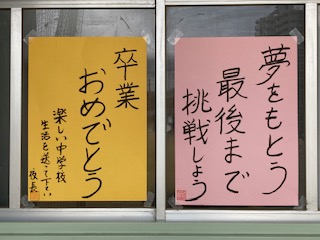 夢をもとう
最後まで
挑戦しよう
卒業
おめでとう
楽しい中学校
生活を送って下さい
校長